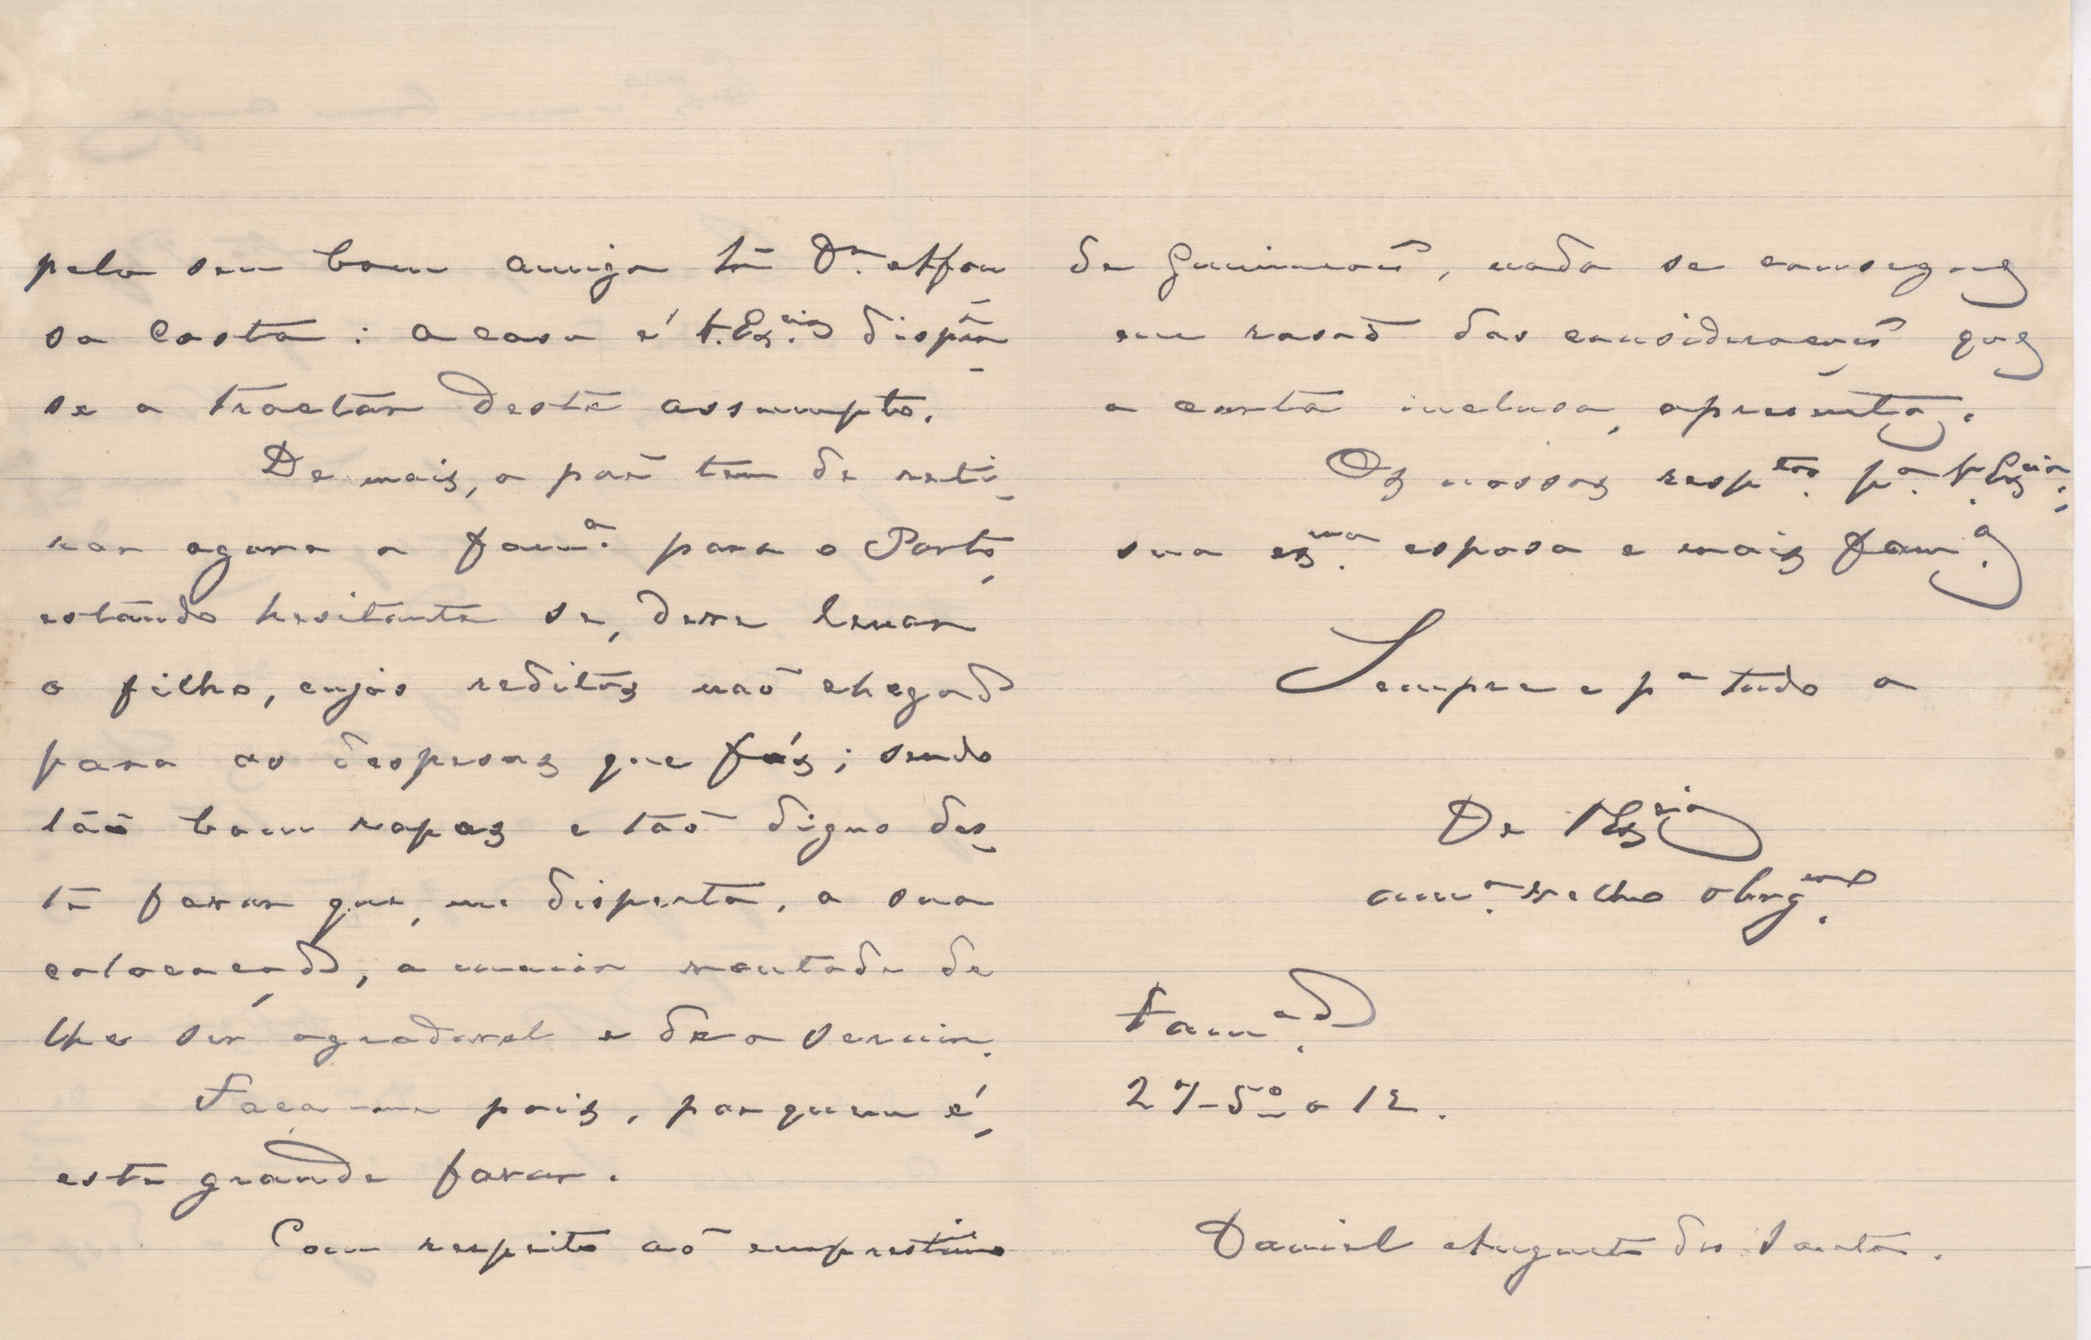 pelo seu bom amigo sñr Dr. Affon
so Costa: a casa é V. Ex.cia dispôr
se a tractar deste assumpto.
De mais, o pae tem de reti-
rar agora a fam.a para o Porto,
estando hesitante se deve levar
o filho, cujos reditos não chegaõ
para as despesas que fás; sendo
tão bom rapaz e tão digno des-
te favor que me disperta, a sua
colocaçaõ, a maior vontade de
lhe ser agradavel e de o servir.
Faça-me pois, por quem é,
este grande favor.
Com respeito aõ emprestimo
de Guimarães, nada se consegue
em rasaõ das consideraçoẽs que
a carta inclusa, apresenta.
Os nossos resp.tos p.a V. Ex.cia,
sua ex.ma esposa e mais fam.a
Sempre e p.a tudo o
De V Ex.cia
am.o velho obrg.mo
Fam.ão
27-5º-912.
Daniel Augusto dos Santos.